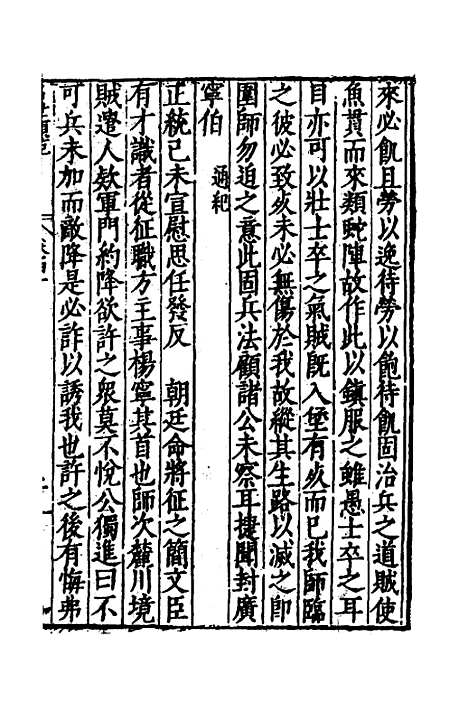 來必飢且勞以逸待勞以飽待飢固治兵之道賊使
魚貫而來類蛇陣故作此以鎮服之雖愚士卒之耳
目亦可以壯士卒之氣賊既入堡有死而已我師臨
之彼必致死未必無傷於我故縱其生路以滅之即
圍師勿迫之意此固兵法顧諸公未察耳捷聞封廣
寧伯 通紀
正統己未宣慰思任發反 朝廷命將征之簡文臣
有才識者從征職方主事楊寧其首也師次麓川境
賊遣人欵軍門約降欲許之衆莫不悅公獨進曰不
可兵未加而敵降是必詐以誘我也許之後有悔弗